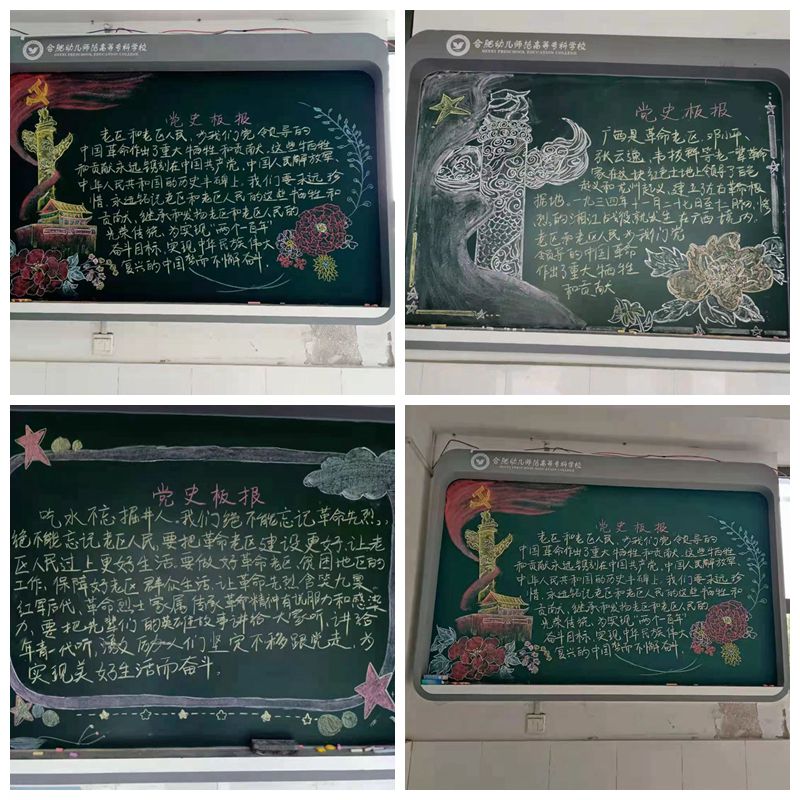 合肥幼儿师范高等专科学校
HEFEI PRESCHOOL EDUCATION COLLEGE
党史板报
老区和老区人民，为我们党领导的
中国革命作出了重大牺牲和贡献，这些牺牲
和贡献永远镌刻在中国共产党，中国人民解放军，
中华人民共和国的历史丰碑上。我们要永远珍
惜，永远铭记老区和老区人民的这些牺牲和
贡献，继承和发扬老区和老区人民的
光荣传统，为实现"两个一百年"
奋斗目标，实现中华民族伟大
复兴的中国梦而不懈奋斗。
合肥幼儿师范高等专科学校
HEFEI PRESCHOOL EDUCATION COLLEGE
党史板报
广西是革命老区，邓小平、
张云逸、韦拔群等老一辈革命
家在这块红色土地上领导了百色
起义和龙州起义，建立了左右革命根
据地。一九三四年十一月二十七日至十二月初，惨
烈的湘江战役就发生在广西境内。
老区和老区人民为我们党
领导的中国革命
作出了重大牺牲
和贡献
党史板报
吃水不忘掘井人。我们绝不能忘记革命先烈，
绝不能忘记老区人民，要把革命老区建设更好，让老
区人民过上更好生活。要做好革命老区、贫困地区的
工作，保障好老区群众生活，让革命先烈含笑九泉
红军后代、革命烈士家属传承革命精神有说服力和感染
力，要把先辈们的英雄故事讲给大家听，讲给
年青一代听，激励人们坚定不移跟党走，为
实现美好生活而奋斗。
合肥幼儿师范高等专科学校
HEFEI PRESCHOOL EDUCATION COLLEGE
党史板报
老区和老区人民，为我们党领导的
中国革命作出了重大牺牲和贡献，这些牺牲
和贡献永远镌刻在中国共产党，中国人民解放军，
中华人民共和国的历史丰碑上。我们要永远珍
惜，永远铭记老区和老区人民的这些牺牲和
贡献，继承和发扬老区和老区人民的
光荣传统，为实现"两个一百年"
奋斗目标，实现中华民族伟大
复兴的中国梦而不懈奋斗。